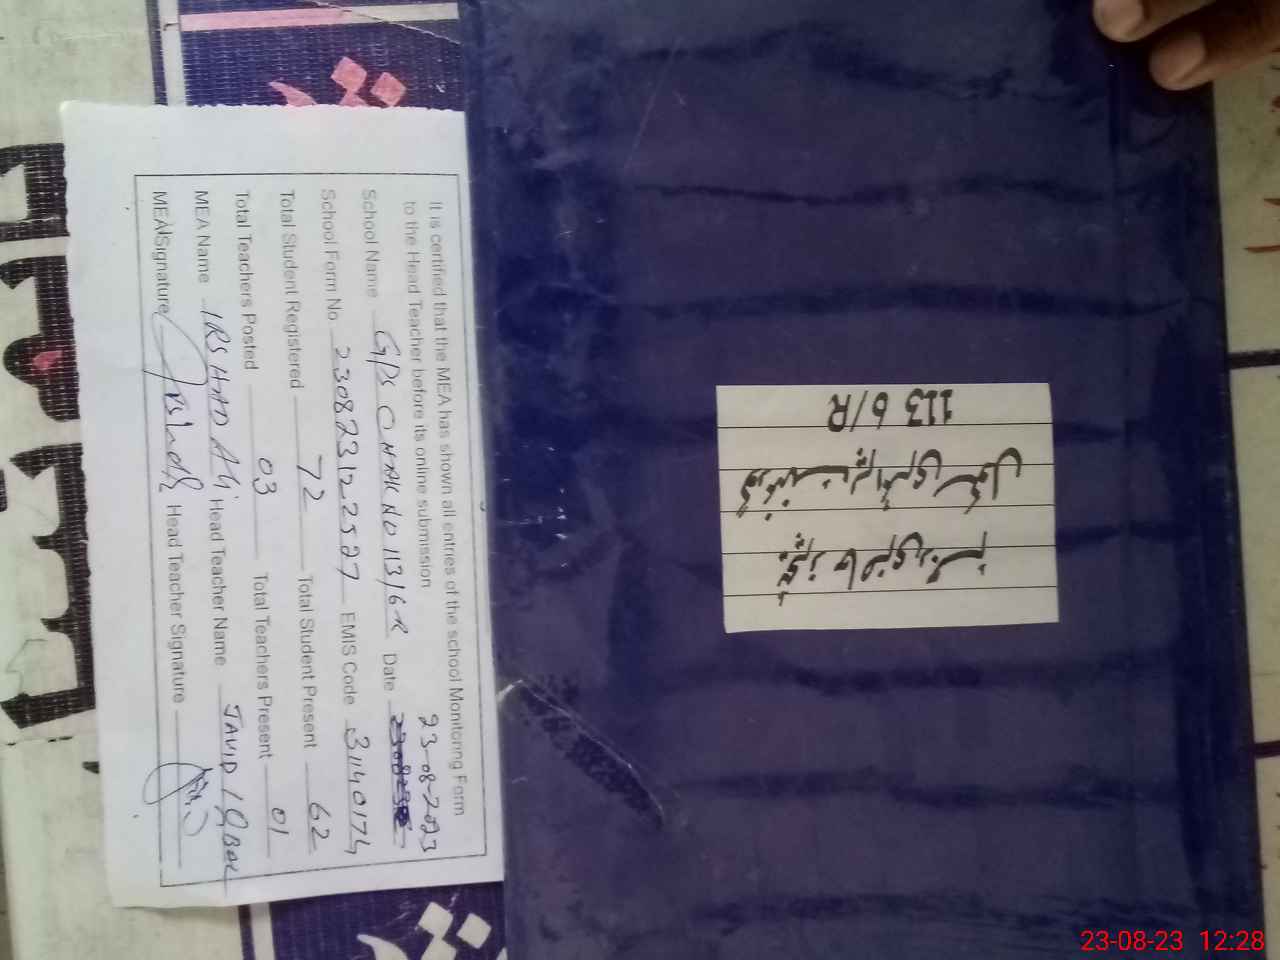 It is certified that the MEA has shown all entries of the school Monitoring Form
to the Head Teacher before its online submission
23-08-2023
School Name GPS CHAK NO 113/6R Date
School Form No 230823122527 EMIS Code 31140174
Total Student Registered 72 Total Student Present 62
Total Teachers Posted 03 Total Teachers Present 01
MEA Name IRSHAD Ali Head Teacher Name JAVID IQBAL
MEA Signature Irshad Head Teacher Signature
ٹیچرز حاضری رجسٹر
گورنمنٹ پرائمری سکول
113 6/R
23-08-23 12:28